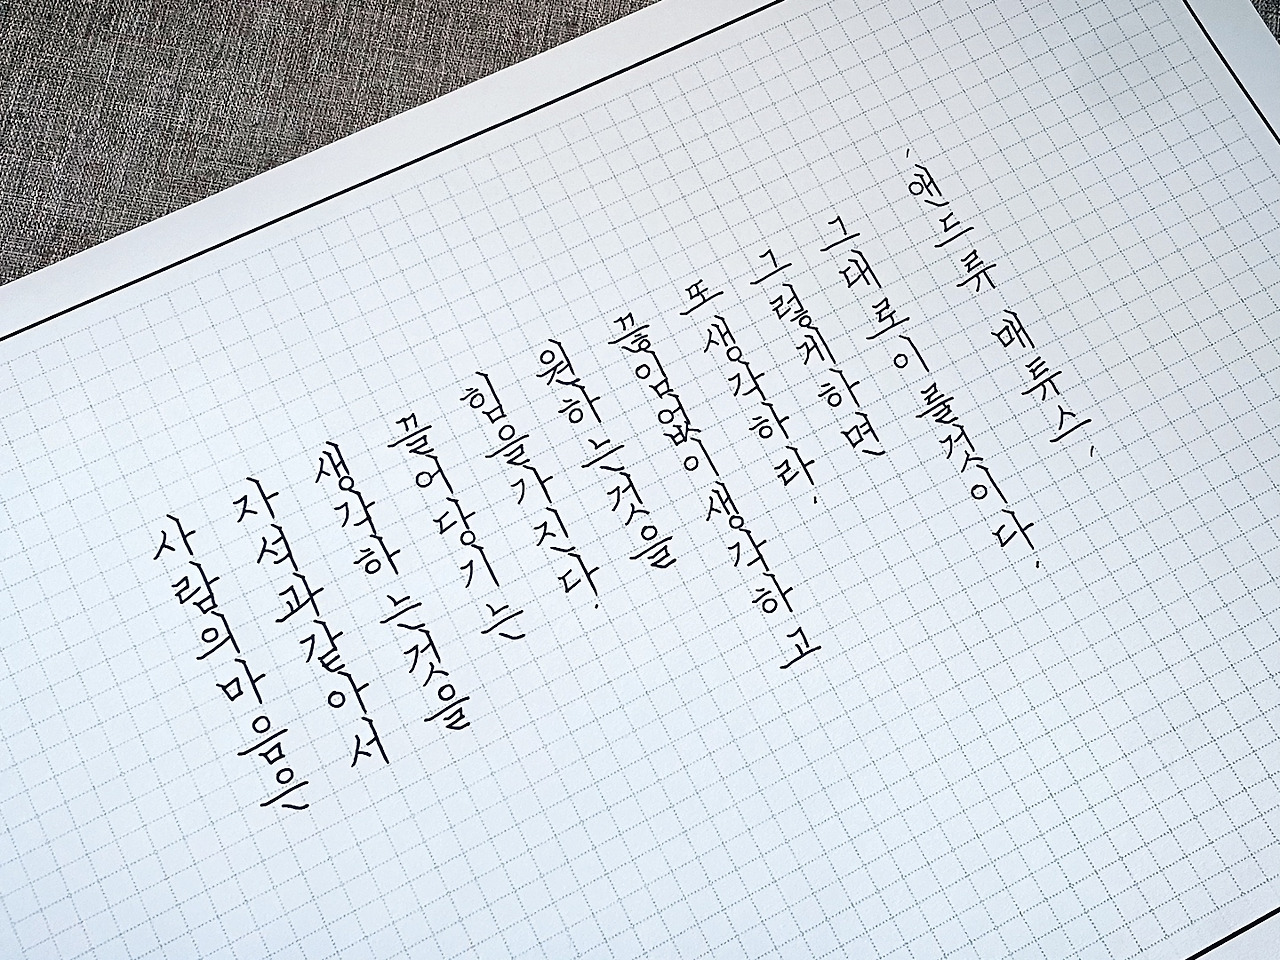 사람의마음은
자석과같아서
생각하는것을
끌어당기는
힘을가진다.
원하는것을
끓임없이생각하고
또생각하라.
그렇게하면
그대로이룰것이다.
'앤드류 매튜스'